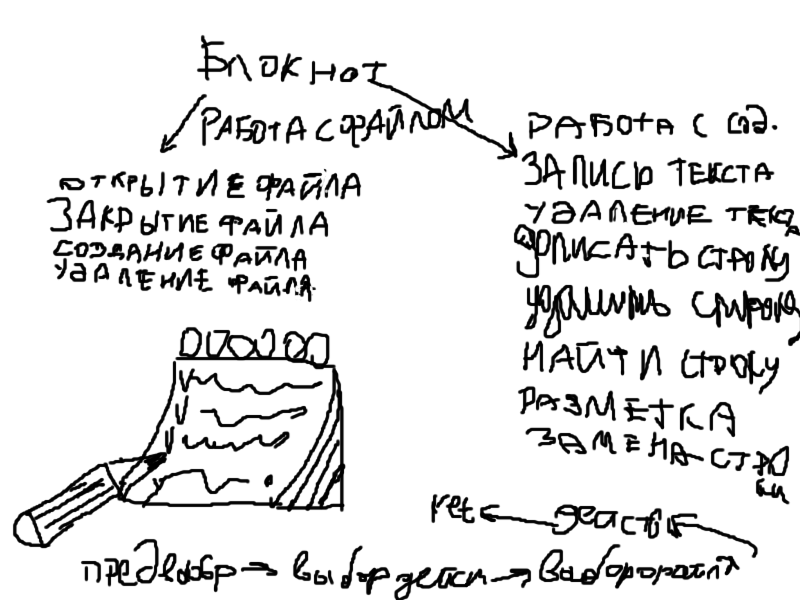 БЛОКНОТ
РАБОТА С ФАЙЛОМ
ОТКРЫТИЕ ФАЙЛА
ЗАКРЫТИЕ ФАЙЛА
СОЗДАНИЕ ФАЙЛА
УДАЛЕНИЕ ФАЙЛА
РАБОТА С СОД.
ЗАПИСЬ ТЕКСТА
УДАЛЕНИЕ ТЕКСТА
ДОПИСАТЬ СТРОКУ
удалить строку
НАЙТИ СТРОКУ
РАЗМЕТКА
ЗАМЕНА СТРО
ки
ret действ
предвыбр выбор действ выбор